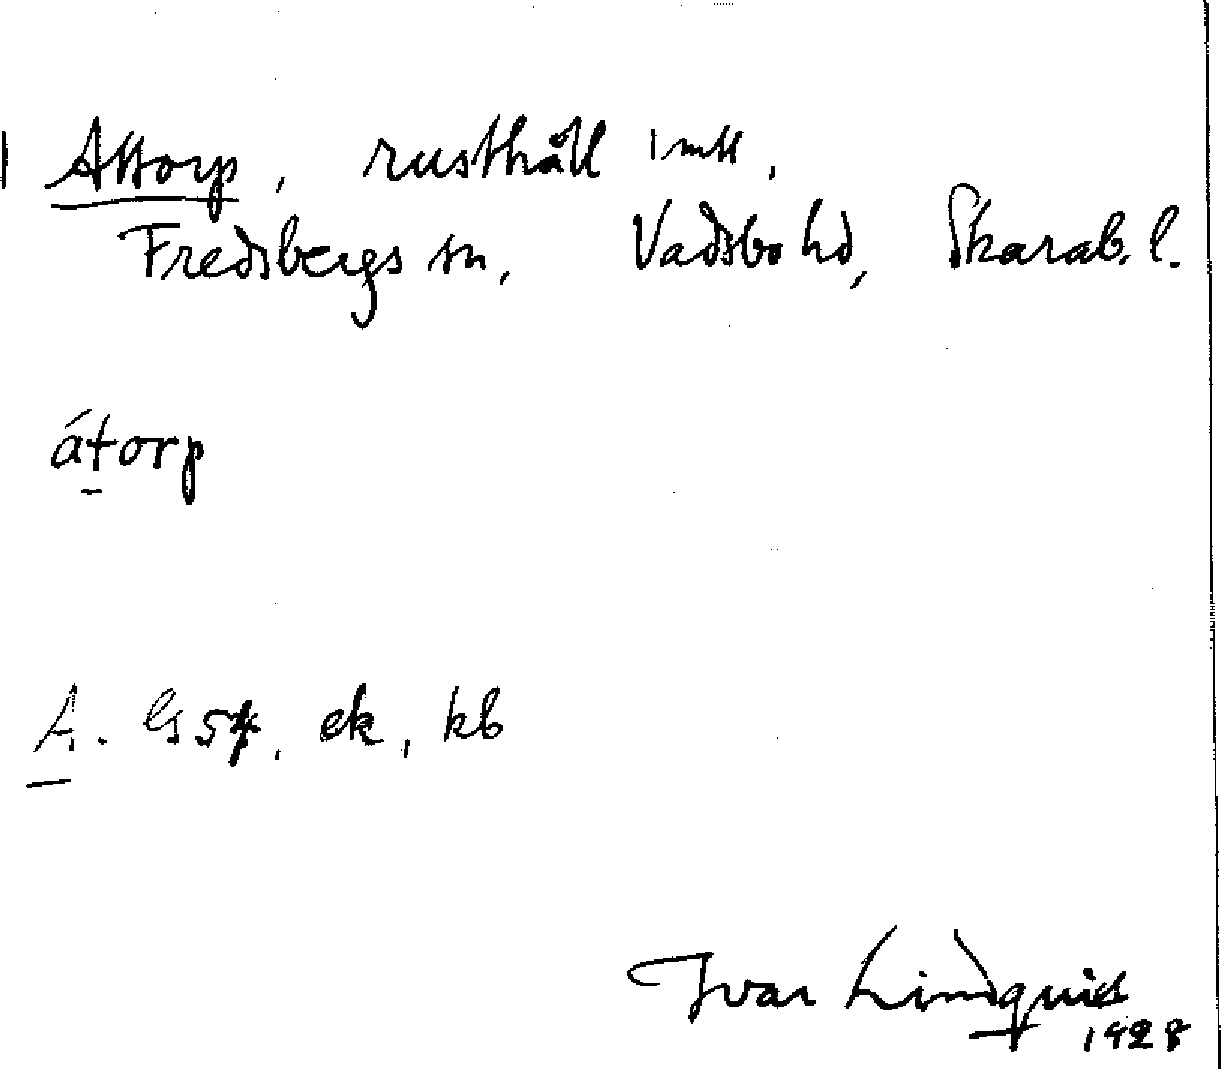 Attorp, rusthåll 1 mtl,
Fredsbergs sn, Vadsbo hd, Skarab. l.
átorp
A. G 5 4, ek, kb
Ivar Lindquist
1928